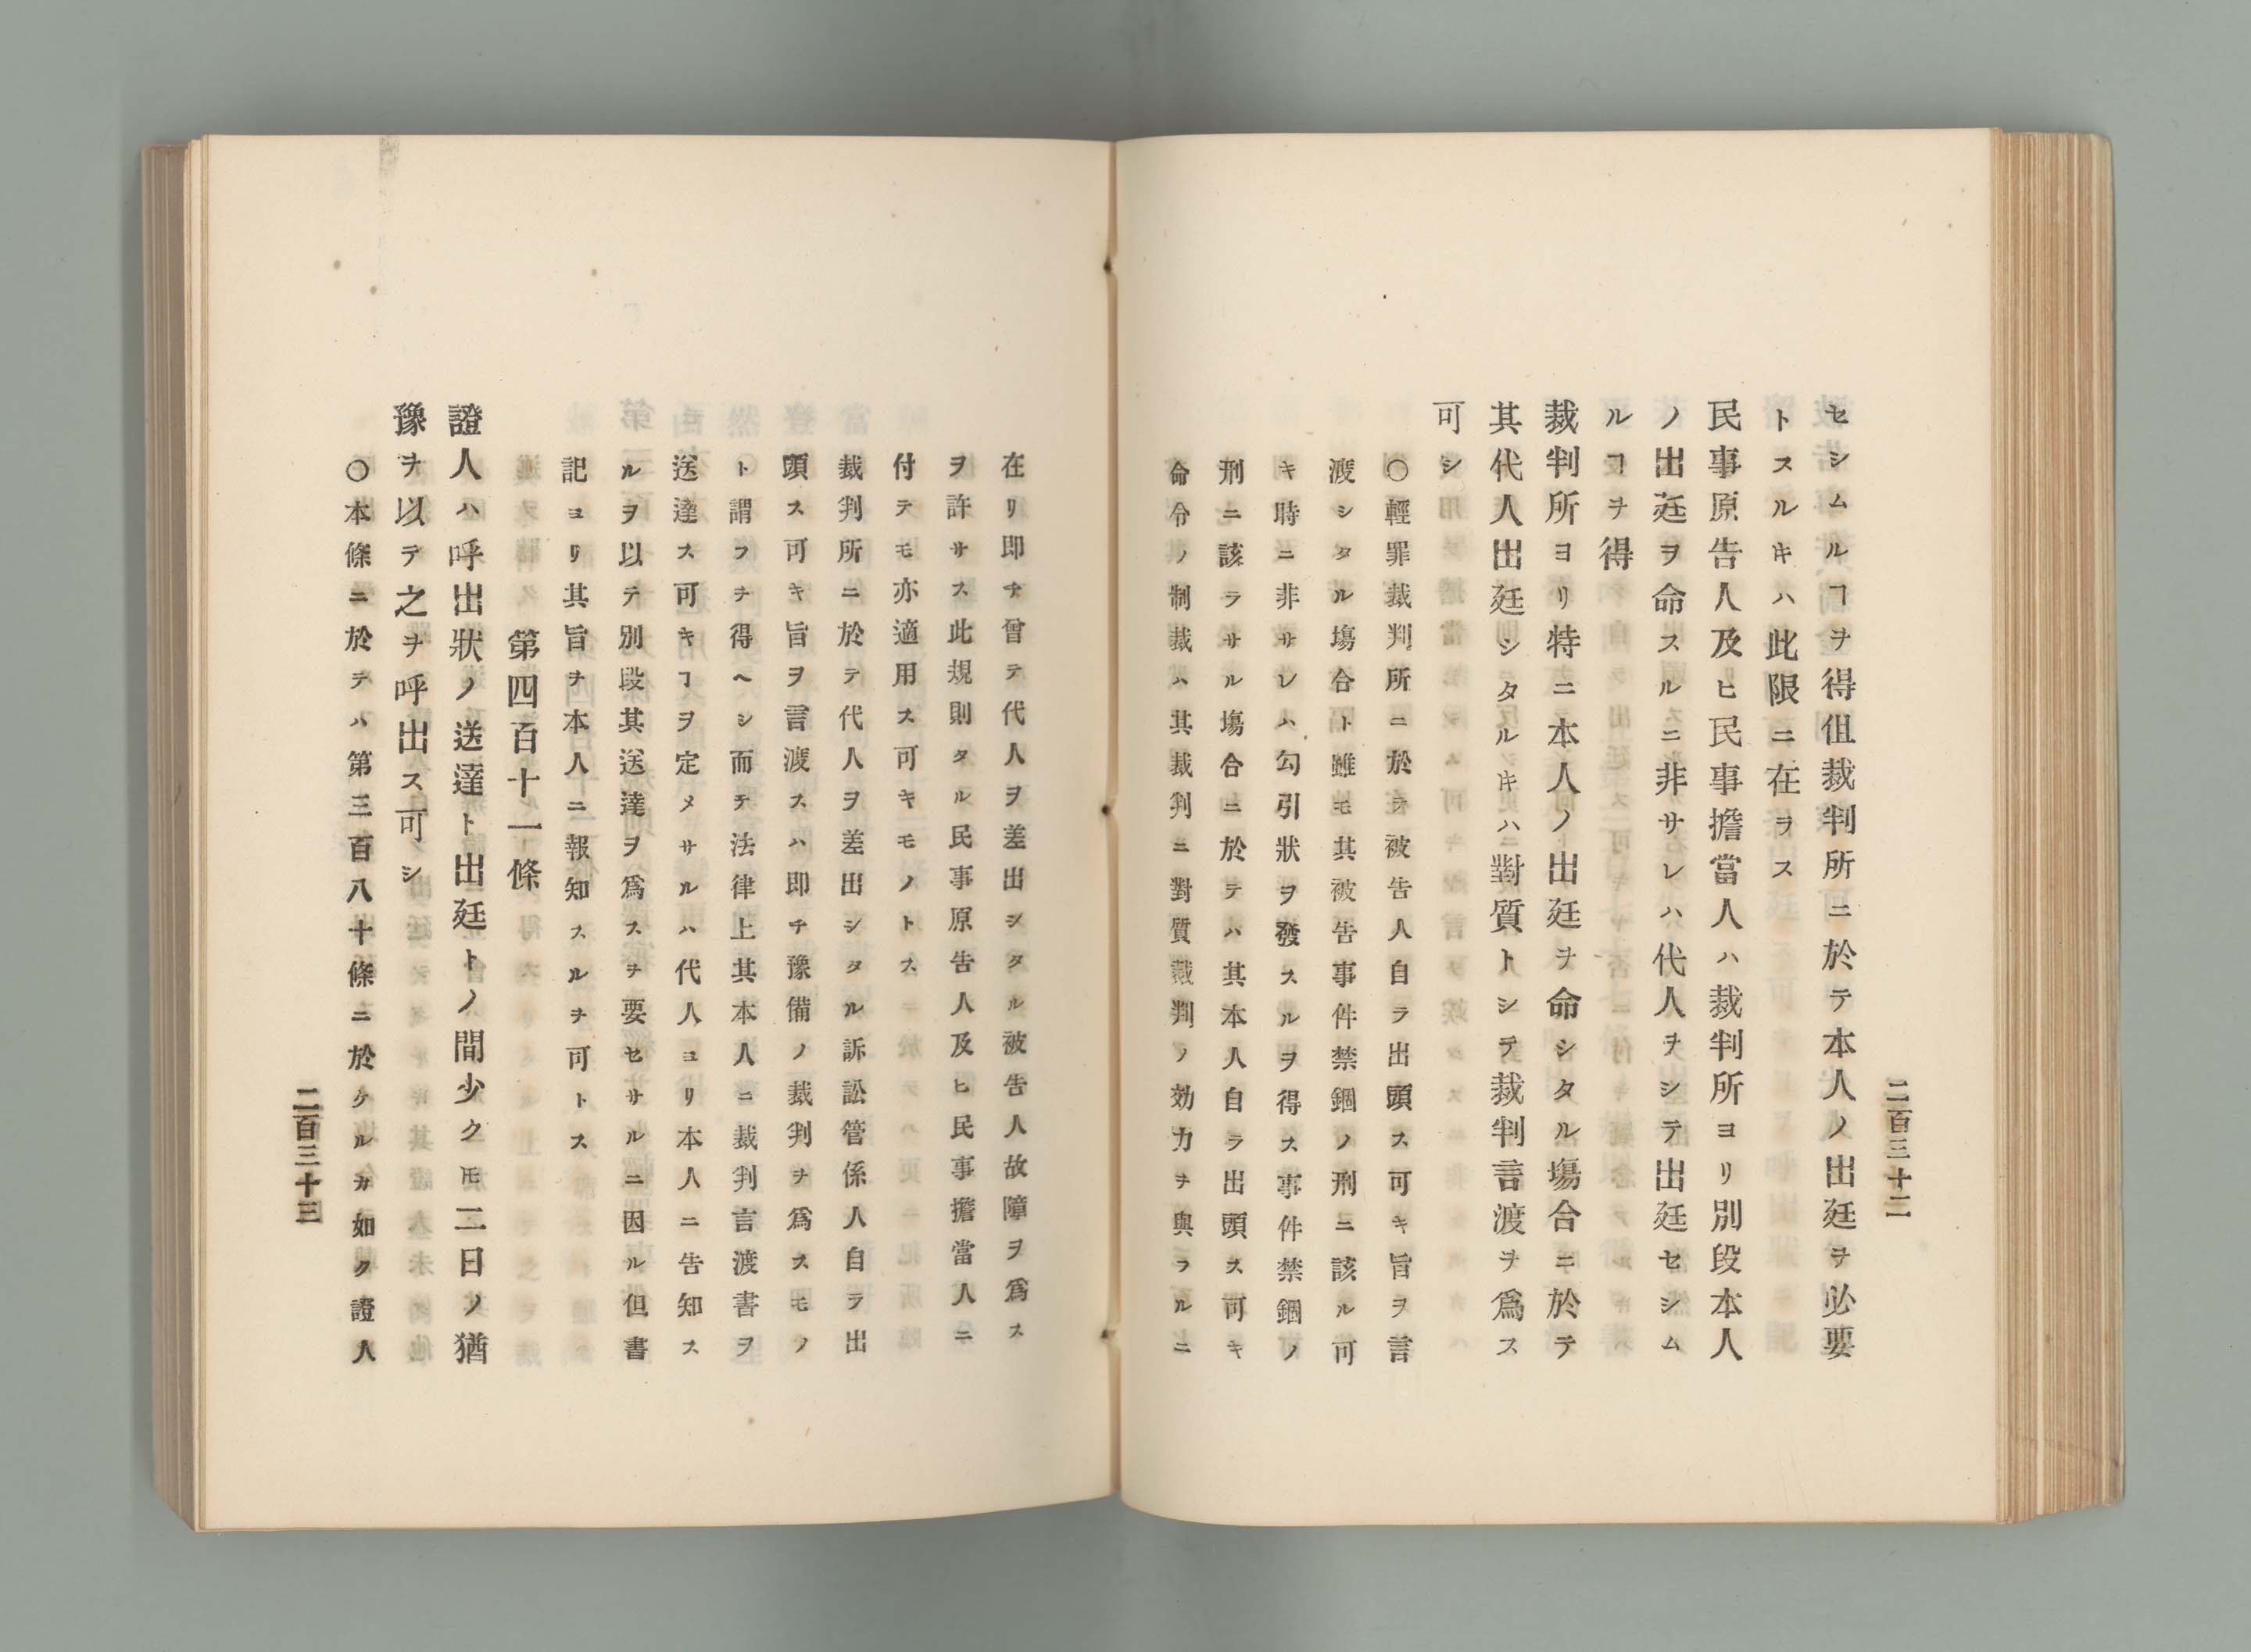 二百三十二
セシムルヿヲ得但裁判所ニ於テ本人ノ出廷ヲ必要
トスルキハ此限ニ在ラス
民事原告人及ヒ民事擔當人ハ裁判所ヨリ別段本人
ノ出廷ヲ命スルニ非サレハ代人ヲシテ出廷セシム
ルヿヲ得
裁判所ヨリ特ニ本人ノ出廷ヲ命シタル塲合ニ於テ
其代人出廷シタルキハ對質トシテ裁判言渡ヲ爲ス
可シ
〇輕罪裁判所ニ於テ被告人自ラ出頭ス可キ旨ヲ言
渡シタル塲合ト雖モ其被告事件禁錮ノ刑ニ該ル可
キ時ニ非サレハ勾引狀ヲ發スルヲ得ス事件禁錮ノ
刑ニ該ラサル塲合ニ於テハ其本人自ラ出頭ス可キ
命令ノ制裁ハ其裁判ニ對質裁判ノ効力ヲ與ラルニ
在リ即チ曾テ代人ヲ差出シタル被告人故障ヲ爲ス
ヲ許サス此規則タル民事原告人及ヒ民事擔當人ニ
付テモ亦適用ス可キモノトス
裁判所ニ於テ代人ヲ差出シタル訴訟管係人自ラ出
頭ス可キ旨ヲ言渡スハ即チ豫備ノ裁判ヲ爲スモノ
ト謂フヲ得ヘシ而テ法律上其本人ニ裁判言渡書ヲ
送達ス可キヿヲ定メサルハ代人ヨリ本人ニ告知ス
ルヲ以テ別段其送達ヲ爲スヲ要セサルニ因ル但書
記ヨリ其旨ヲ本人ニ報知スルヲ可トス
第四百十一條
證人ハ呼出狀ノ送達ト出廷トノ間少クモ二日ノ猶
豫ヲ以テ之ヲ呼出ス可シ
〇本條ニ於テハ第三百八十條ニ於クルカ如ク證人
二百三十三